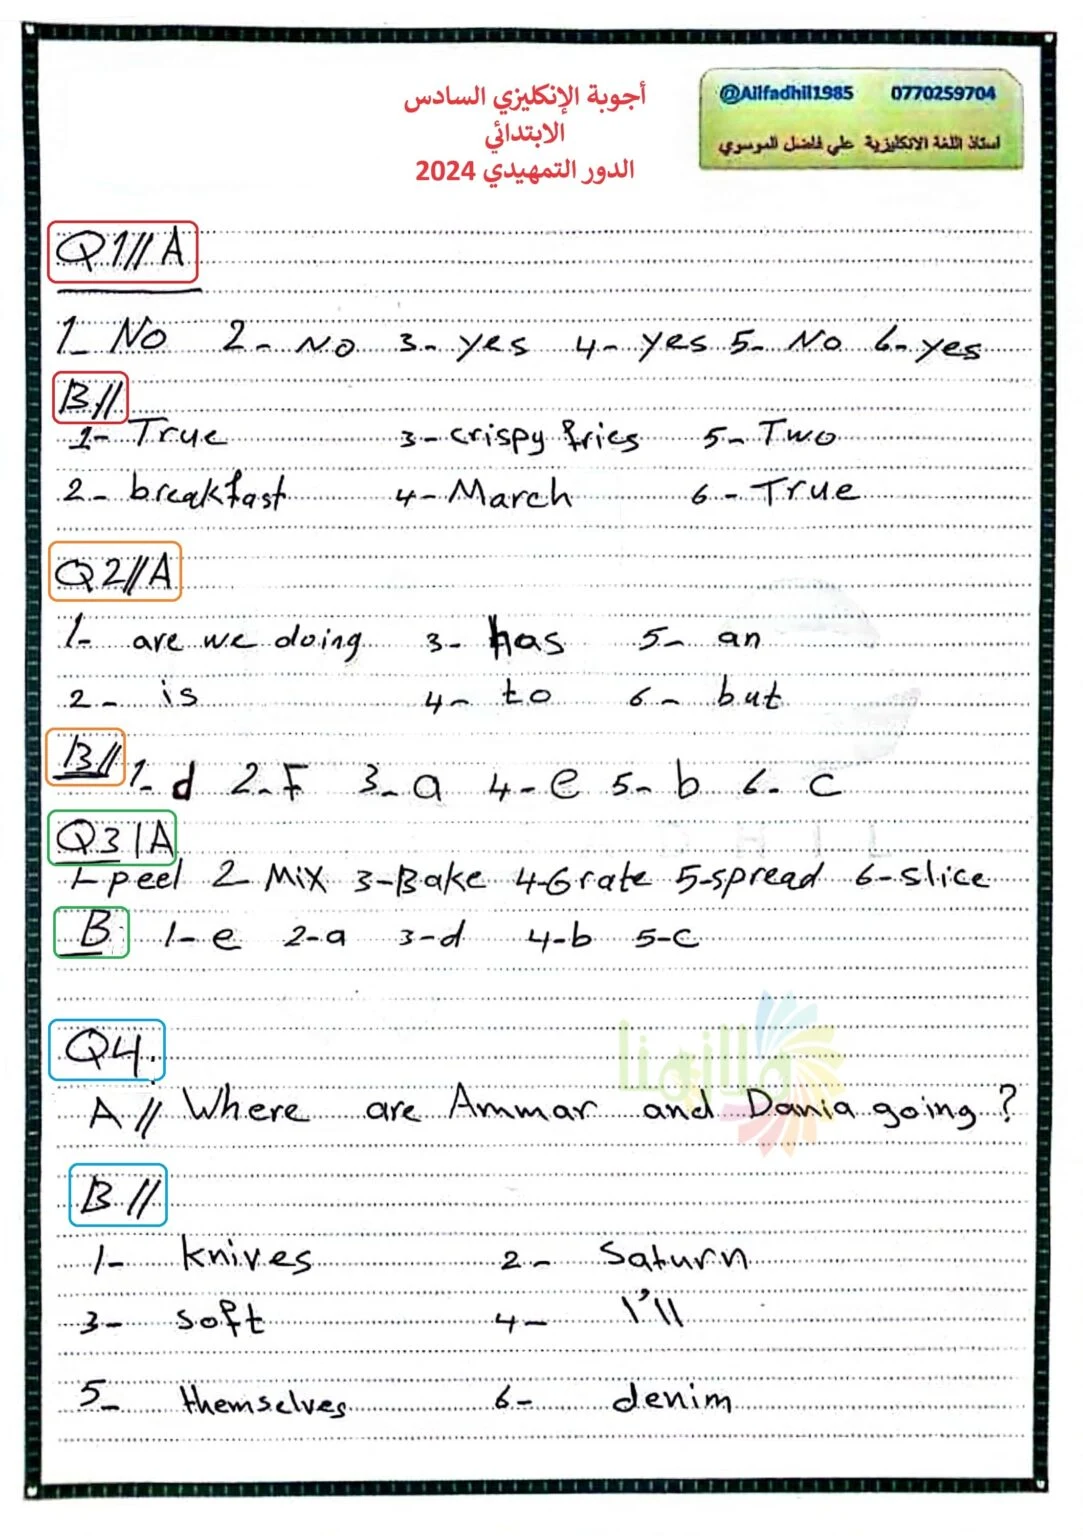 أجوبة الإنكليزي السادس
الابتدائي
الدور التمهيدي 2024
@Alifadhil1985 0770259704
استاذ اللغة الانكليزية علي فاضل الموسوي
Q1// A
1- No 2- No 3- yes 4- yes 5- No 6- yes
B//
1- True 3- crispy fries 5- Two
2- breakfast 4- March 6- True
Q2// A
1- are we doing 3- has 5- an
2- is 4- to 6- but
B// 1- d 2- F 3- a 4- e 5- b 6- c
Q3 | A
1- peel 2- Mix 3- Bake 4- Grate 5- spread 6- slice
B 1- e 2- a 3- d 4- b 5- c
Q4.
A // Where are Ammar and Dania going?
B //
1- knives 2- Saturn
3- soft 4- I'll
5- themselves 6- denim